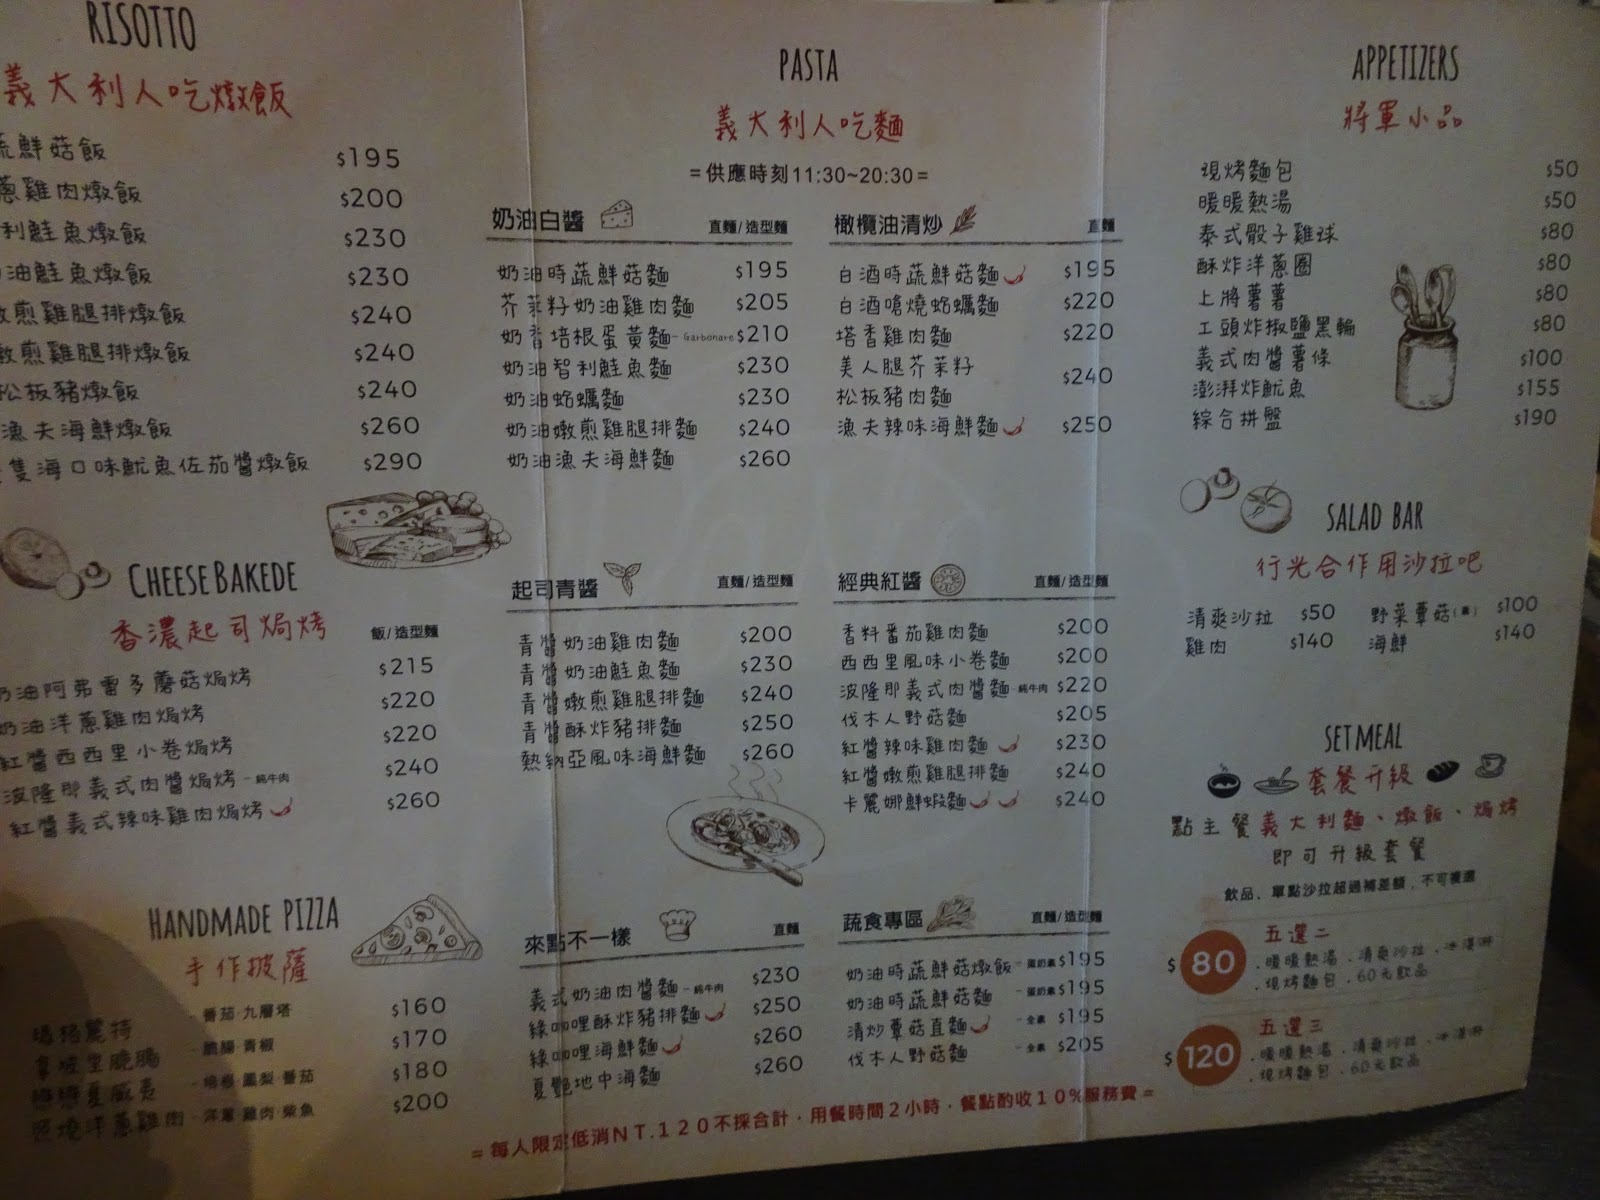 RISOTTO
義大利人吃燉飯
蔬鮮菇飯 $195
蔥雞肉燉飯 $200
利鮭魚燉飯 $230
油鮭魚燉飯 $230
煎雞腿排燉飯 $240
嫩煎雞腿排燉飯 $240
松板豬燉飯 $240
漁夫海鮮燉飯 $260
隻海口味魷魚佐茄醬燉飯 $290
CHEESE BAKEDE
香濃起司焗烤 飯/造型麵
奶油阿弗雷多蘑菇焗烤 $215
奶油洋蔥雞肉焗烤 $220
紅醬西西里小卷焗烤 $220
波隆那義式肉醬焗烤-純牛肉 $240
紅醬義式辣味雞肉焗烤 $260
HANDMADE PIZZA
手作披薩
瑪格麗特 - 番茄·九層塔 $160
拿坡里脆腸 - 脆腸·青椒 $170
戀戀夏威夷 - 培根·鳳梨·番茄 $180
照燒洋蔥雞肉 - 洋蔥 雞肉·柴魚 $200
PASTA
義大利人吃麵
=供應時刻11:30~20:30=
奶油白醬 直麵/造型麵
奶油時蔬鮮菇麵 $195
芥茉籽奶油雞肉麵 $205
奶香培根蛋黃麵- Garbonare $210
奶油智利鮭魚麵 $230
奶油蛤蠣麵 $230
奶油嫩煎雞腿排麵 $240
奶油漁夫海鮮麵 $260
橄欖油清炒 直麵
白酒時蔬鮮菇麵 $195
白酒嗆燒蛤蠣麵 $220
塔香雞肉麵 $220
美人腿芥茉籽
松板豬肉麵 $240
漁夫辣味海鮮麵 $250
起司青醬 直麵/造型麵
青醬奶油雞肉麵 $200
青醬奶油鮭魚麵 $230
青醬嫩煎雞腿排麵 $240
青醬酥炸豬排麵 $250
熱納亞風味海鮮麵 $260
經典紅醬 直麵/造型麵
香料番茄雞肉麵 $200
西西里風味小卷麵 $200
波隆那義式肉醬麵-純牛肉 $220
伐木人野菇麵 $205
紅醬辣味雞肉麵 $230
紅醬嫩煎雞腿排麵 $240
卡麗娜鮮蝦麵 $240
來點不一樣 直麵
義式奶油肉醬麵-純牛肉 $230
綠咖哩酥炸豬排麵 $250
綠咖哩海鮮麵 $260
夏艷地中海麵 $260
蔬食專區 直麵/造型麵
奶油時蔬鮮菇燉飯-蛋奶素 $195
奶油時蔬鮮菇麵 -蛋奶素 $195
清炒蕈菇直麵 -全素 $195
伐木人野菇麵 -全素 $205
=每人限定低消NT.120不採合計·用餐時間2小時·餐點酌收10%服務費=
APPETIZERS
將軍小品
現烤麵包 $50
暖暖熱湯 $50
泰式骰子雞球 $80
酥炸洋蔥圈 $80
上將薯薯 $80
工頭炸椒鹽黑輪 $80
義式肉醬薯條 $100
澎湃炸魷魚 $155
綜合拼盤 $190
SALAD BAR
行光合作用沙拉吧
清爽沙拉 $50 野菜蕈菇(素) $100
雞肉 $140 海鮮 $140
SET MEAL
套餐升級
點主餐義大利麵、燉飯、焗烤
即可升級套餐
飲品、單點沙拉超過補差額,不可複選
$80 五選二
.暖暖熱湯.清爽沙拉.冰淇淋
.現烤麵包.60元飲品
$120 五選三
.暖暖熱湯.清爽沙拉.冰淇淋
.現烤麵包.60元飲品